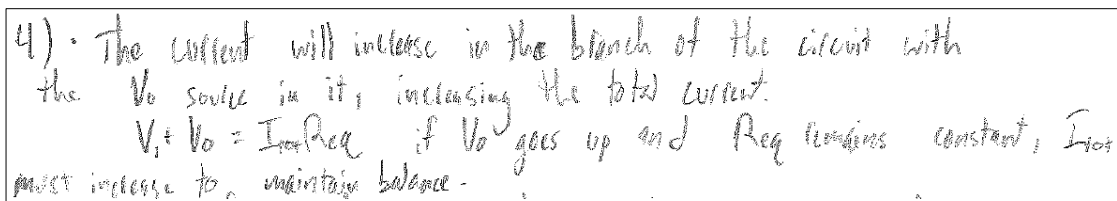 4) · The current will increase in the branch of the circuit with
the V₀ source in it, increasing the total current.
V₁ + V₀ = I_tot Req if V₀ goes up and Req remains constant, I_tot
must increase to maintain balance.